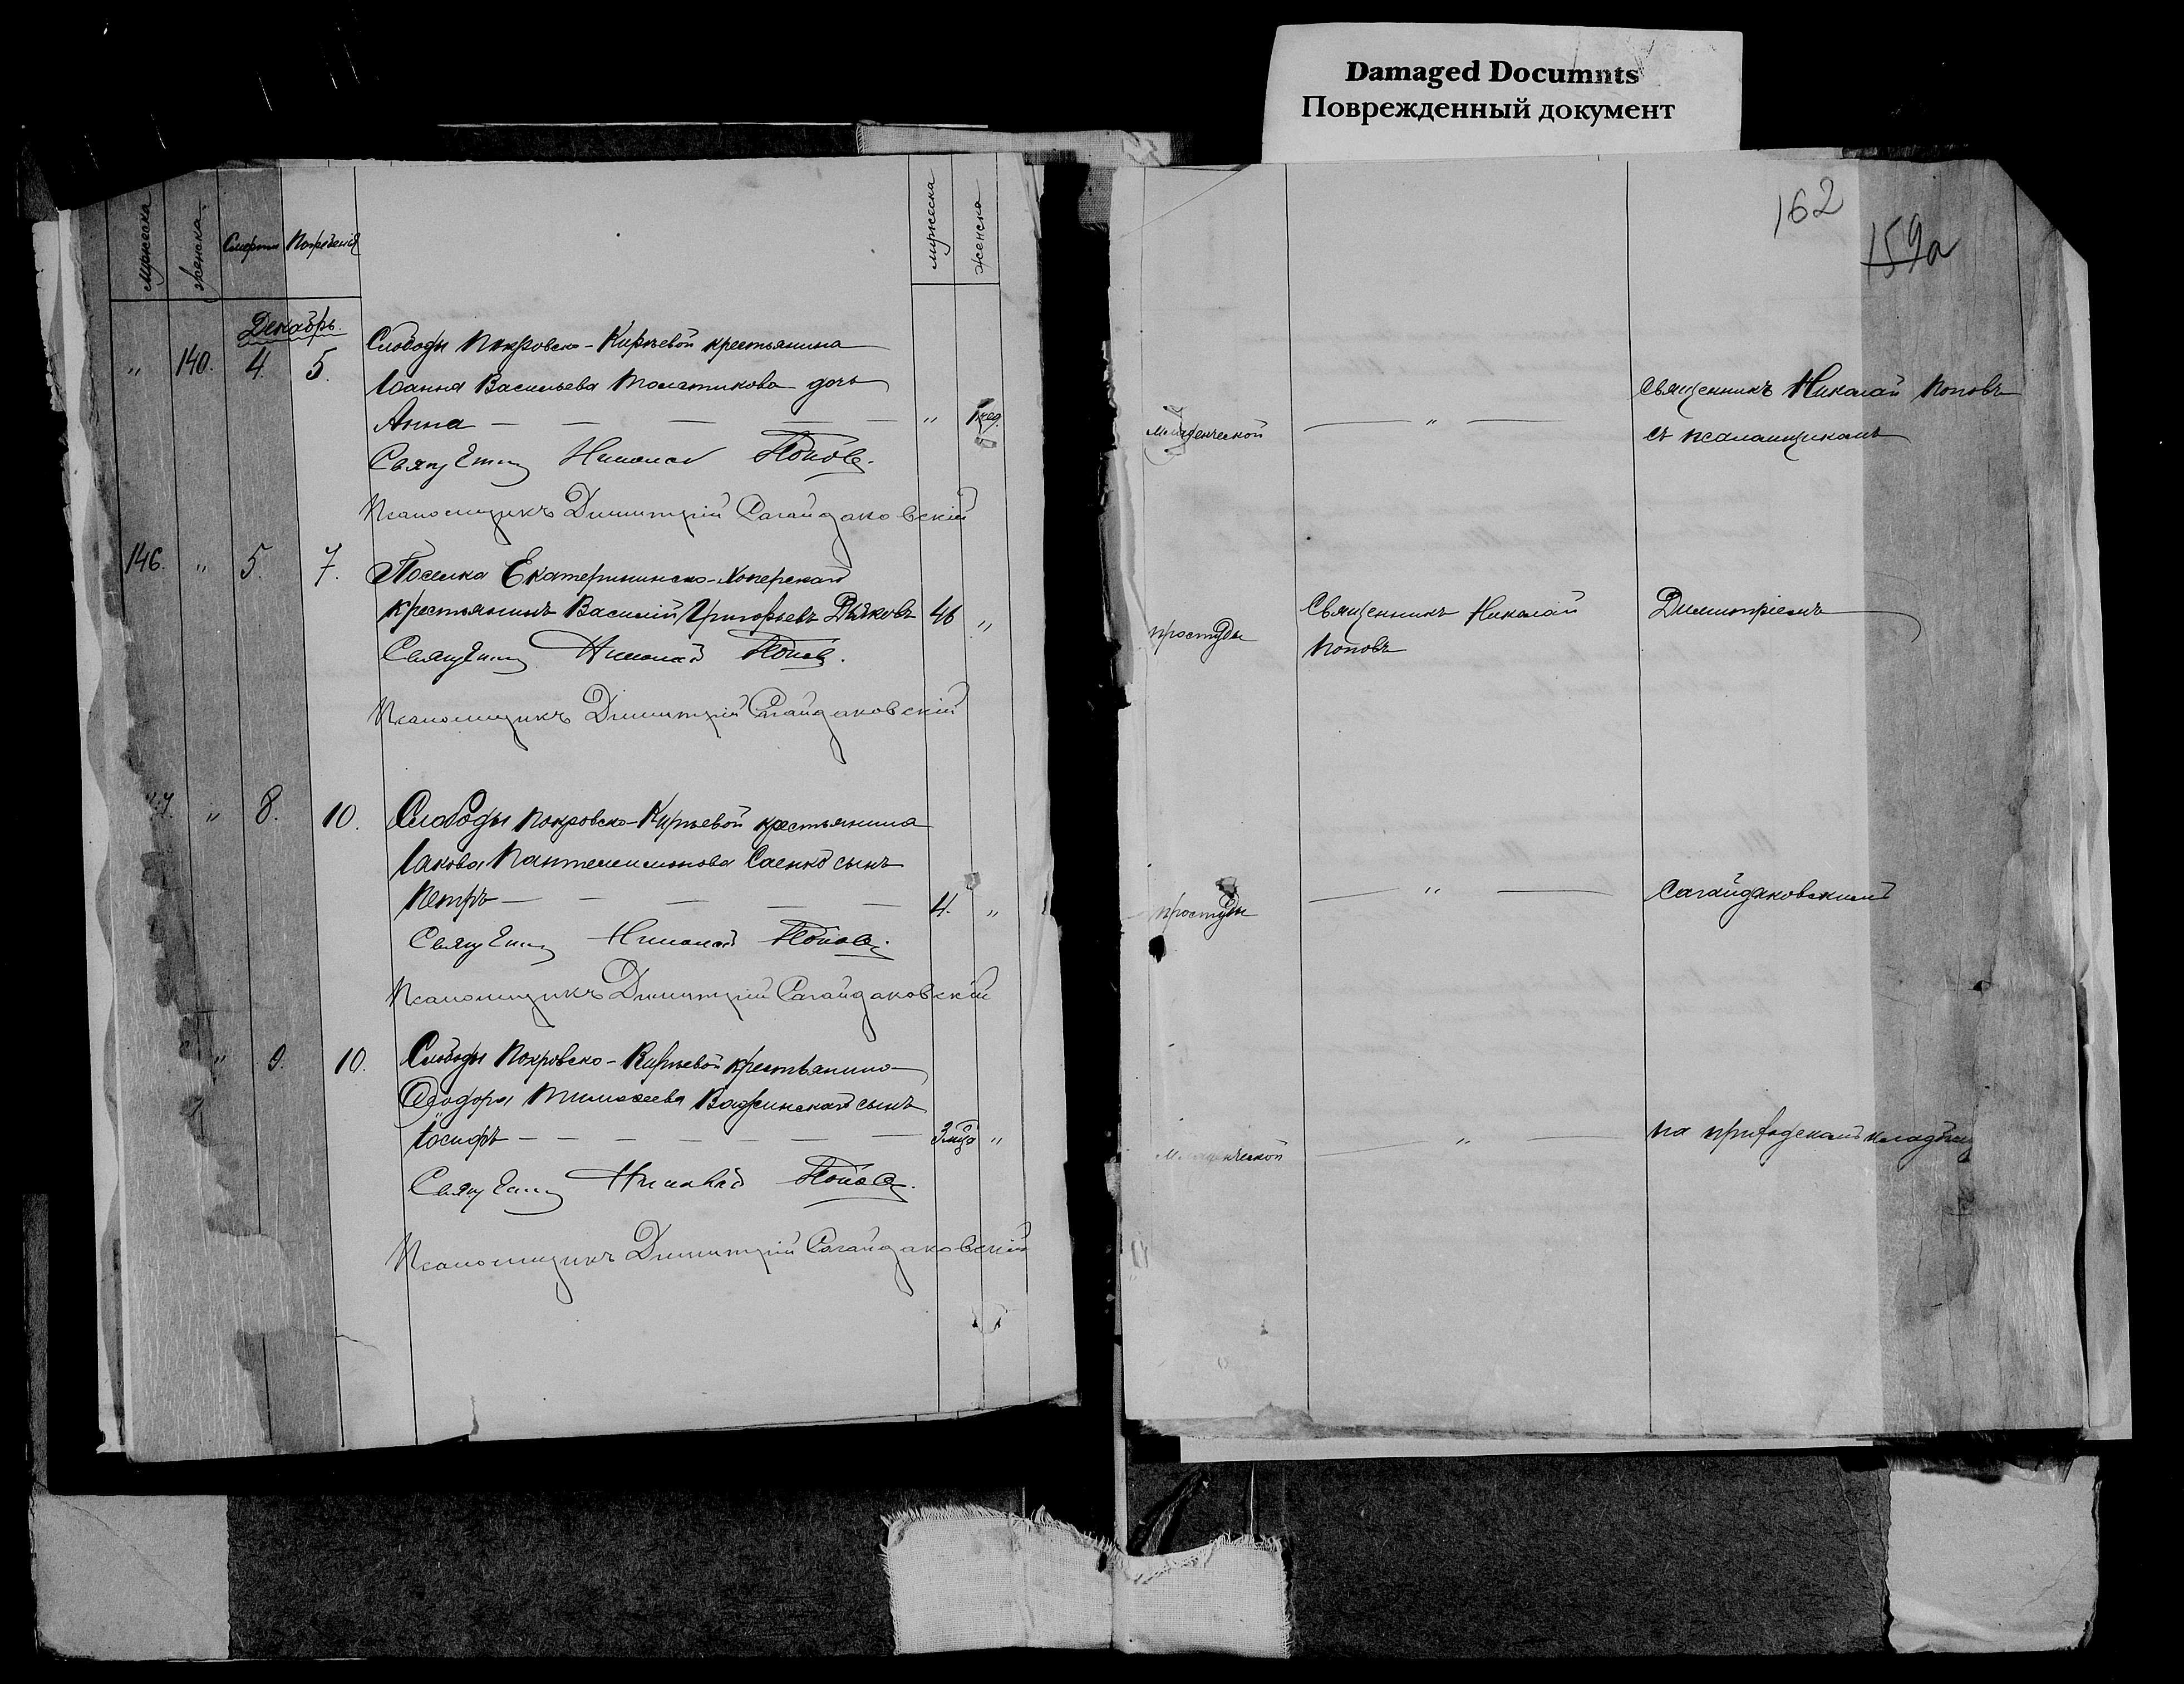 Damaged Documnts
Поврежденный документ
162
159а
мужеска
женска.
Смерти
Погребенія
мужеска
женска
Декабрь.
" 140. 4. 5. Слободы Покровско-Киръевой крестьянина
Іоанна Васильева дочь
Анна — — — — — " 1 нед.
Священникъ Николай Поповъ.
Псаломщикъ Димитрій Сагайдаковскій
146. " 5. 7. Поселка Екатерининско-Хоперскаго
крестьянинъ Василій Григорьевъ Дьяковъ 46 "
Священникъ Николай Поповъ.
Псаломщикъ Димитрій Сагайдаковскій
" 8. 10. Слободы Покровско-Киръевой крестьянина
Іакова Пантелеимонова Саенко сынъ
Петръ — — — — — 4. "
Священникъ Николай Поповъ.
Псаломщикъ Димитрій Сагайдаковскій
" 9. 10. Слободы Покровско-Киръевой крестьянина
Ѳеодора Тимоѳеева сынъ
Іосифъ — — — — — — 3 мца "
Священникъ Николай Поповъ.
Псаломщикъ Димитрій Сагайдаковскій
младенческой — " — Священникъ Николай Поповъ
съ псаломщикомъ
простуды Священникъ Николай Димитріемъ
Поповъ
простуды — " — Сагайдаковскимъ
младенческой — " — на приходскомъ кладбищѣ